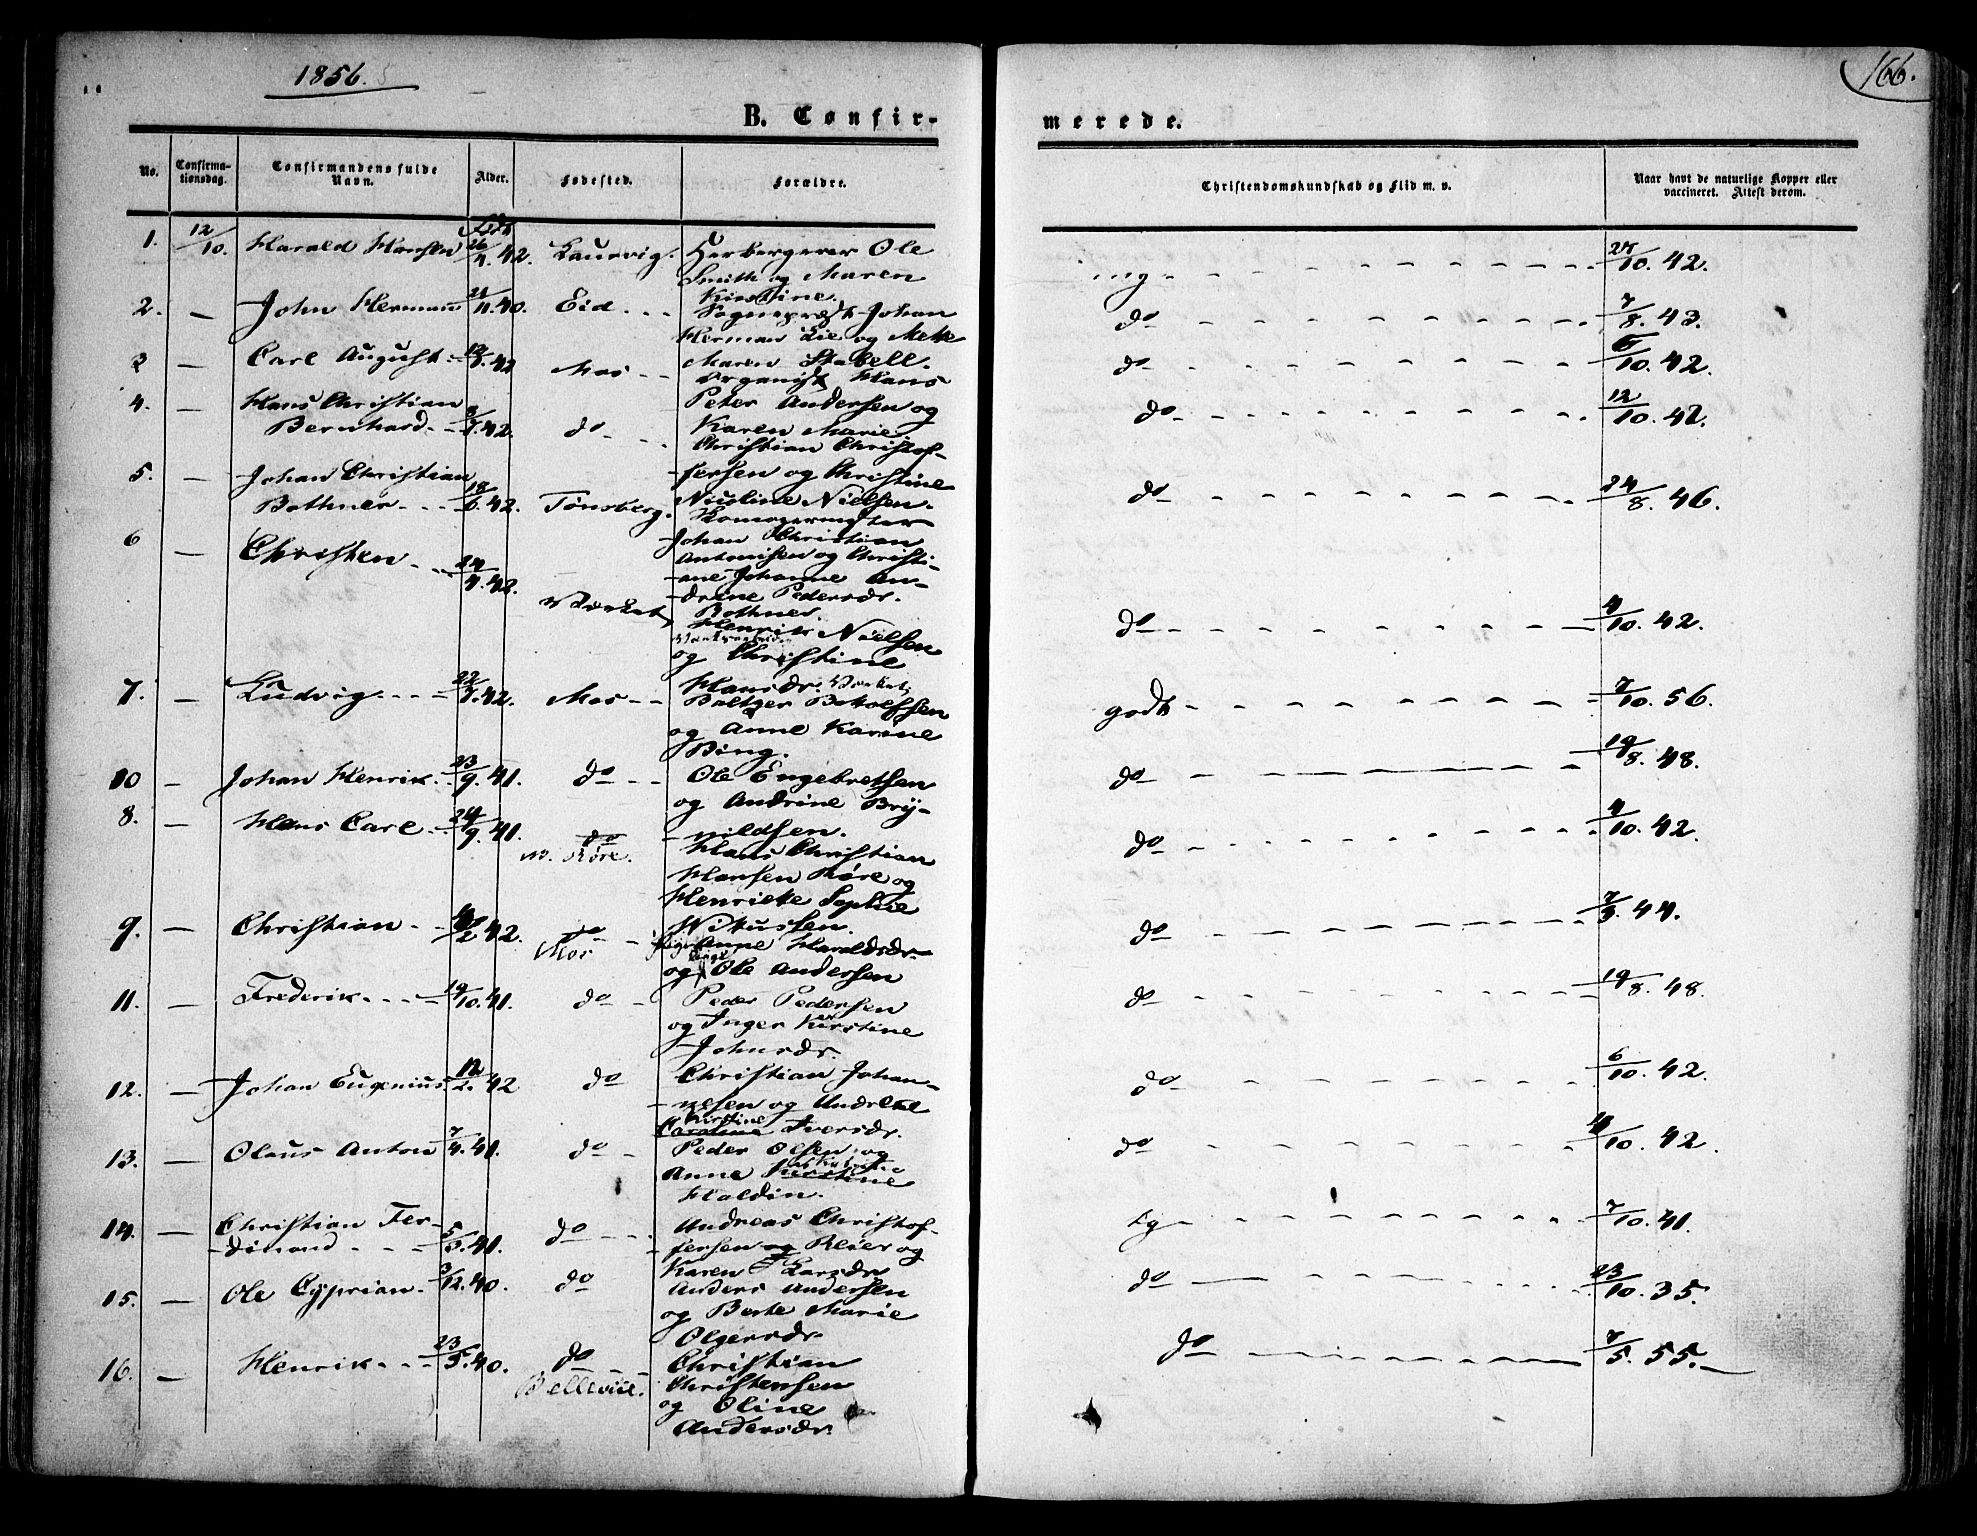 1856.
166.
B. Confir-
merede.
No.
Confirma-
tionsdag.
Confirmandens fulde
Navn.
Alder.
Fødested.
Forældre.
Christendomskundskab og Flid m. v.
Naar havt de naturlige Kopper eller
vaccineret. Attest derom.
1. 12/10. Harald Hansen 26/4. 42. Laurvig. Herbergerer Ole 10. 42.
Smith og Maren
Kirstine.
2. — John Herman 21/11. 40. Eid Sognepræst Johan do 7/8. 43.
Herman Lie og Mette
Maren Stabell.
3 — Carl August 42 Mos Organist Hans do 6/10. 42.
Peter Andersen og
Karen Marie
4. — Hans Christian
Bernhard 42. do Christian Christof- do 12/10. 42.
fersen og Christine
Nicoline Nielsen.
5. — Johan Christian
Bothner 18/6. 42. Tønsberg. do 24/8. 46.
Johan Christian
Antonisen og Christi-
ane Johanne An-
drine Pedersdr.
Bothner.
6 — Christen 24/4. 42. Værket Henrik Nielsen do 4/10. 42.
og Christine
Hansdr. Værket
7. — Ludvig 42. Mos Bøttger
og Anne Karine
Bing.
godt 7/10. 56.
10 — Johan Henrik 23/9. 41. do Ole Engebretsen do 19/8. 48.
og Andrine Bry-
nildsen.
8. — Hans Carl 24/9. 41. do Hans Christian do 4/10. 42.
Hansen Køre og
Henriette Sophie
9. — Christian 42. do
Mos
Anne Haraldsdr. do 7/9. 44.
og Ole Andersen
11. — Frederik 19/10. 41. do Peder Pedersen do 19/8. 48.
og Inger Kirstine
Johnsdr.
12. — Johan Eugenius 12/2. 42 do Christian Johan- do 6/10. 42.
nesen og Andrene
Kirstine
Caroline Iversdr.
13. — Olaus Anton 7/4. 41. do Peder Olsen og do 4/10. 42.
Anne Kirstine
Haldin.
14. — Christian Fer-
dinand 41. do Andreas Christof- tg 7/10. 41.
fersen og Reier og
Karen Larsdr
15. — Ole Cyprian 3/12. 40. do Anders Andersen do 23/10. 35.
og Berte Marie
Olgersdr.
16. — Henrik 23/5. 40. do Christian do 7/5. 55.
Bellevue. Christensen
og Oline
Andersdr.